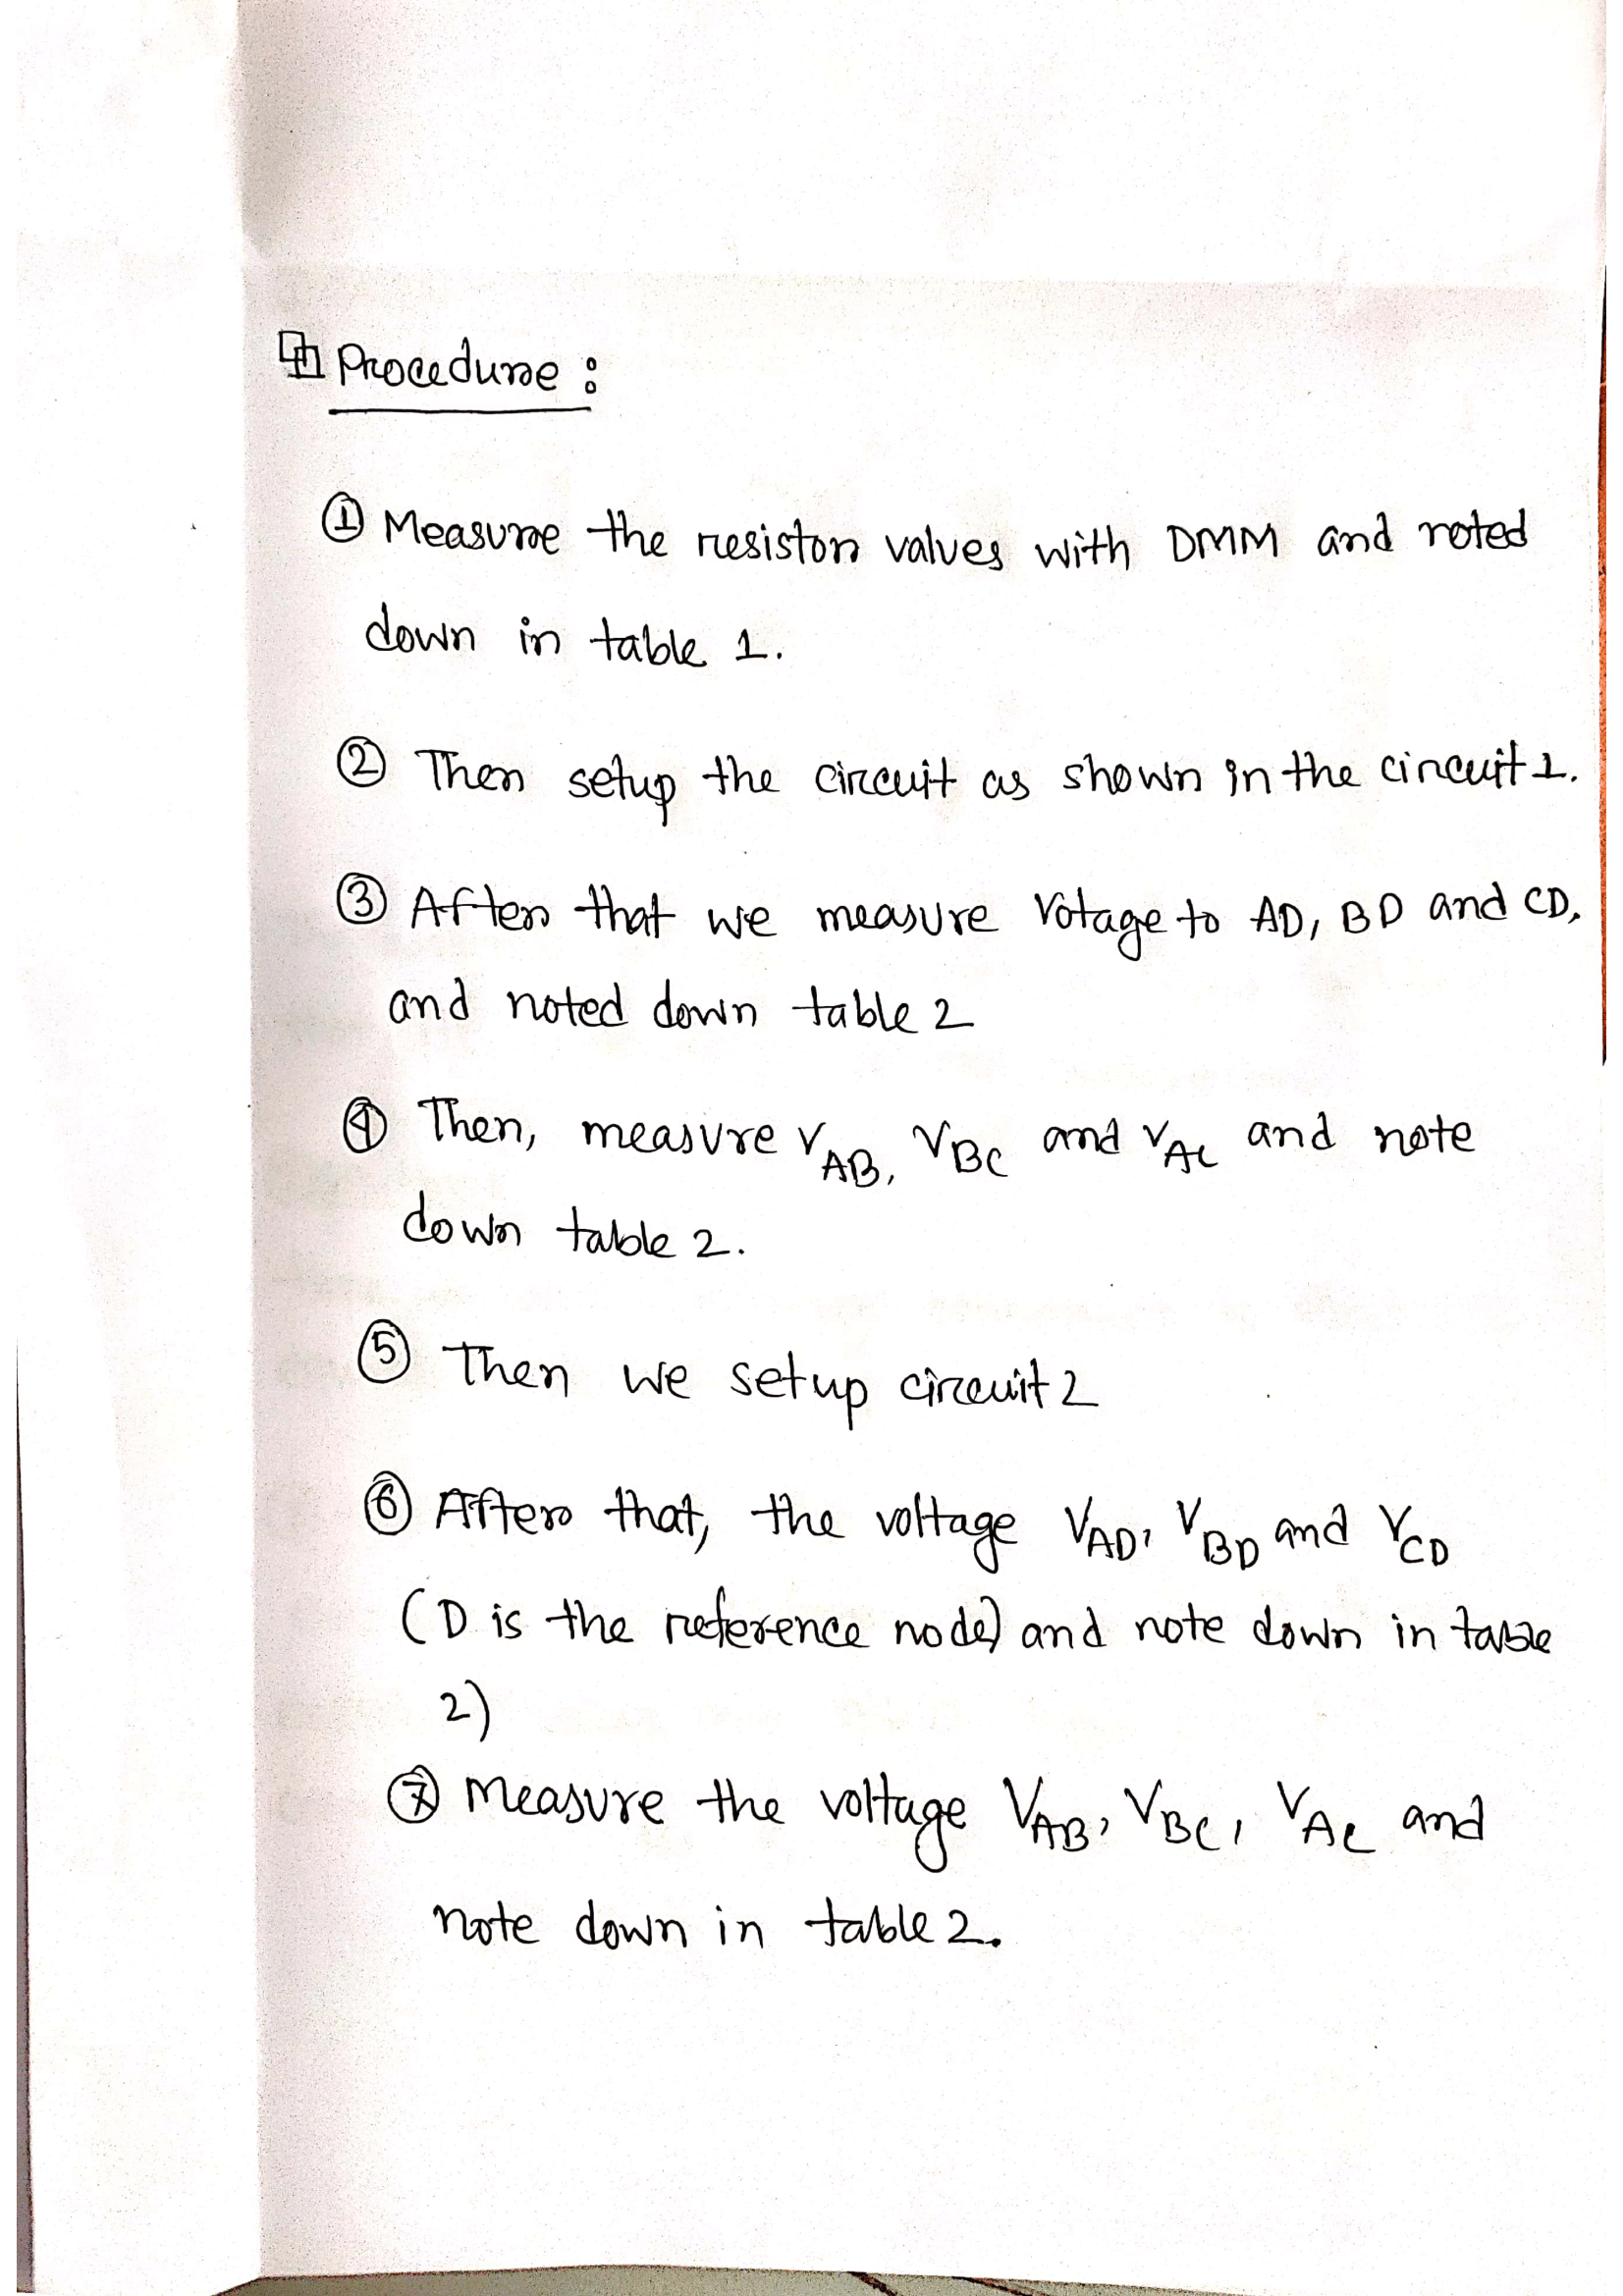 Procedure :
① Measure the resistor values with DMM and noted
down in table 1.
② Then setup the circuit as shown in the circuit 1.
③ After that we measure Votage to AD, BD and CD,
and noted down table 2
④ Then, measure V_AB, V_BC and V_AC and note
down table 2.
⑤ Then we setup circuit 2
⑥ After that, the voltage V_AD, V_BD and V_CD
(D is the reference node) and note down in table
2)
⑦ Measure the voltage V_AB, V_BC, V_AC and
note down in table 2.